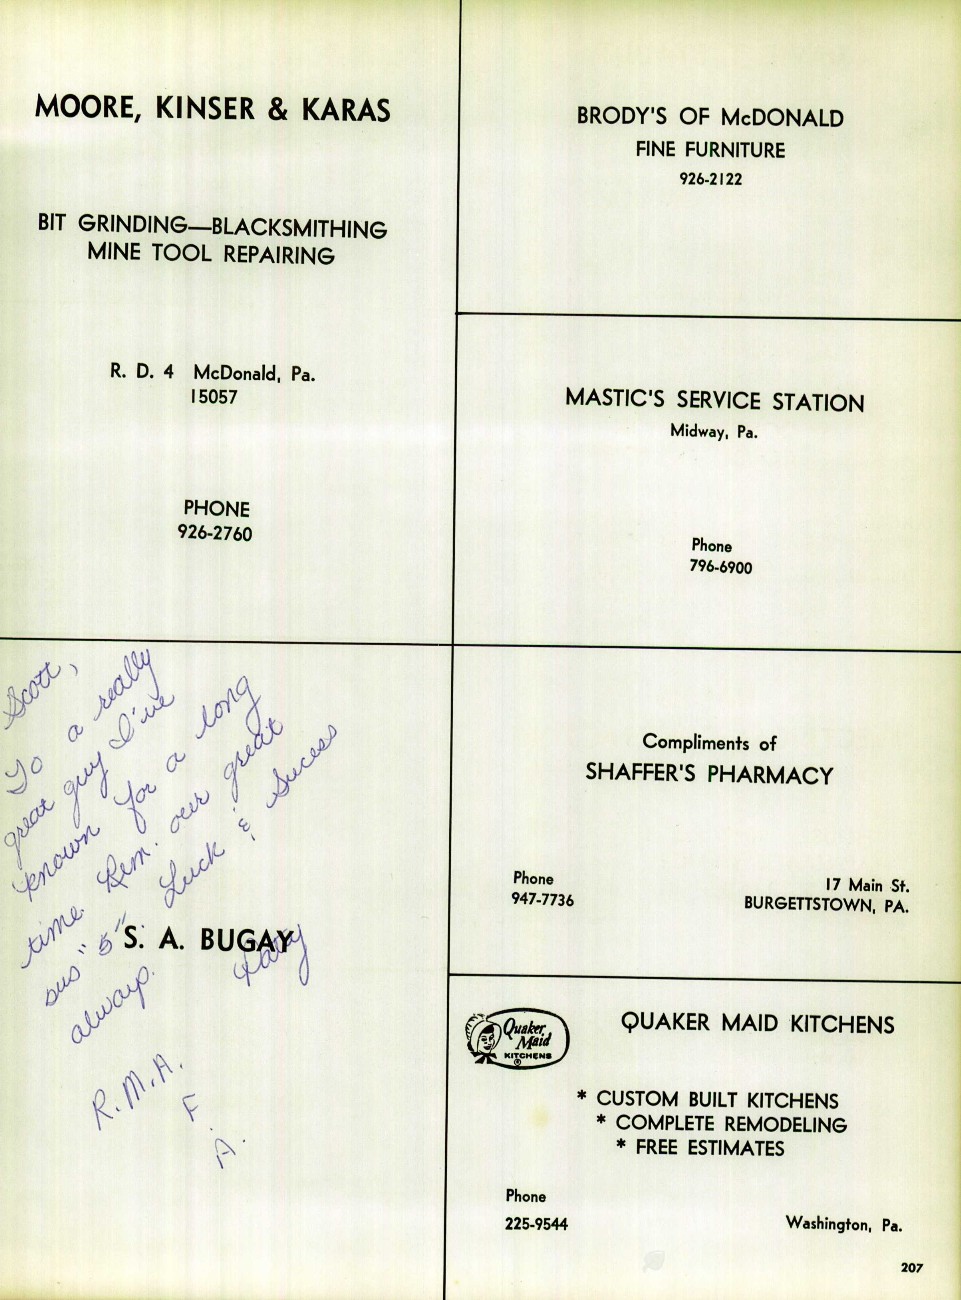 MOORE, KINSER & KARAS
BIT GRINDING—BLACKSMITHING
MINE TOOL REPAIRING
R. D. 4 McDonald, Pa.
15057
PHONE
926-2760
BRODY'S OF McDONALD
FINE FURNITURE
926-2122
MASTIC'S SERVICE STATION
Midway, Pa.
Phone
796-6900
Scott,
To a really
great guy I've
known for a long
time. Rem. our great
bus "5". Luck & Sucess
always.
R.M.A.
F.
A.
S. A. BUGAY
Compliments of
SHAFFER'S PHARMACY
Phone
947-7736
17 Main St.
BURGETTSTOWN, PA.
Quaker
Maid
KITCHENS
®
QUAKER MAID KITCHENS
* CUSTOM BUILT KITCHENS
* COMPLETE REMODELING
* FREE ESTIMATES
Phone
225-9544
Washington, Pa.
207